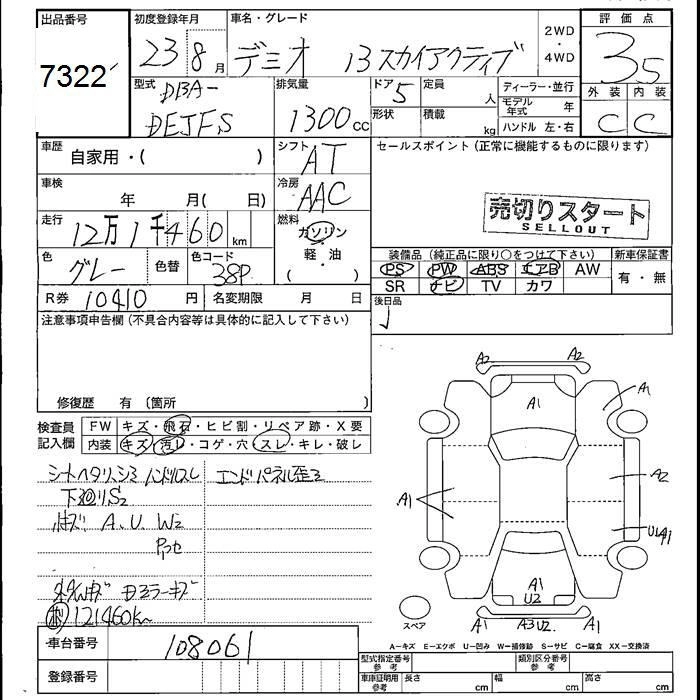 出品番号 初度登録年月 車名・グレード 評価点
7322 23 8月 デミオ 13スカイアクティブ 2WD・4WD 3.5
型式 DBA- DEJFS 排気量 1300cc ドア 5 定員 人 ディーラー・並行 外装 内装
形状 積載 kg モデル年式 年 C C
ハンドル 左・右
車歴 自家用・( ) シフト AT セールスポイント (正常に機能するものに限ります)
車検 年 月( 日) 冷房 AAC
売切りスタート
SELLOUT
走行 12万1千460km 燃料 ガソリン・軽油・( )
装備品 (純正品に限り○をつけて下さい) 新車保証書
色 グレー 色替 色コード 38P
PS PW ABS エアB AW 有・無
SR ナビ TV カワ
R券 10410円 名変期限 月 日 後日品
注意事項申告欄 (不具合内容等は具体的に記入して下さい)
修復歴 有 (箇所 )
検査員記入欄 FW キズ・飛石・ヒビ割・リペア跡・X要
内装 キズ・汚レ・コゲ・穴・スレ・キレ・破レ
シートヘタリ、シミ ハンドルスレ エンドパネル歪ミ
下廻りS2
A.U.W2
ミラーキズ
121460km
A2 A2
A1 A1
A1 A2
U1A1
A1
U2
スペア A1 A3U2 A1
A-キズ E-エクボ U-凹み W-補修跡 S-サビ C-腐食 XX-交換済
車台番号 108061
登録番号
型式指定番号 参考 類別区分番号 参考
車庫証明用 参考 長さ cm 幅 cm 高さ cm